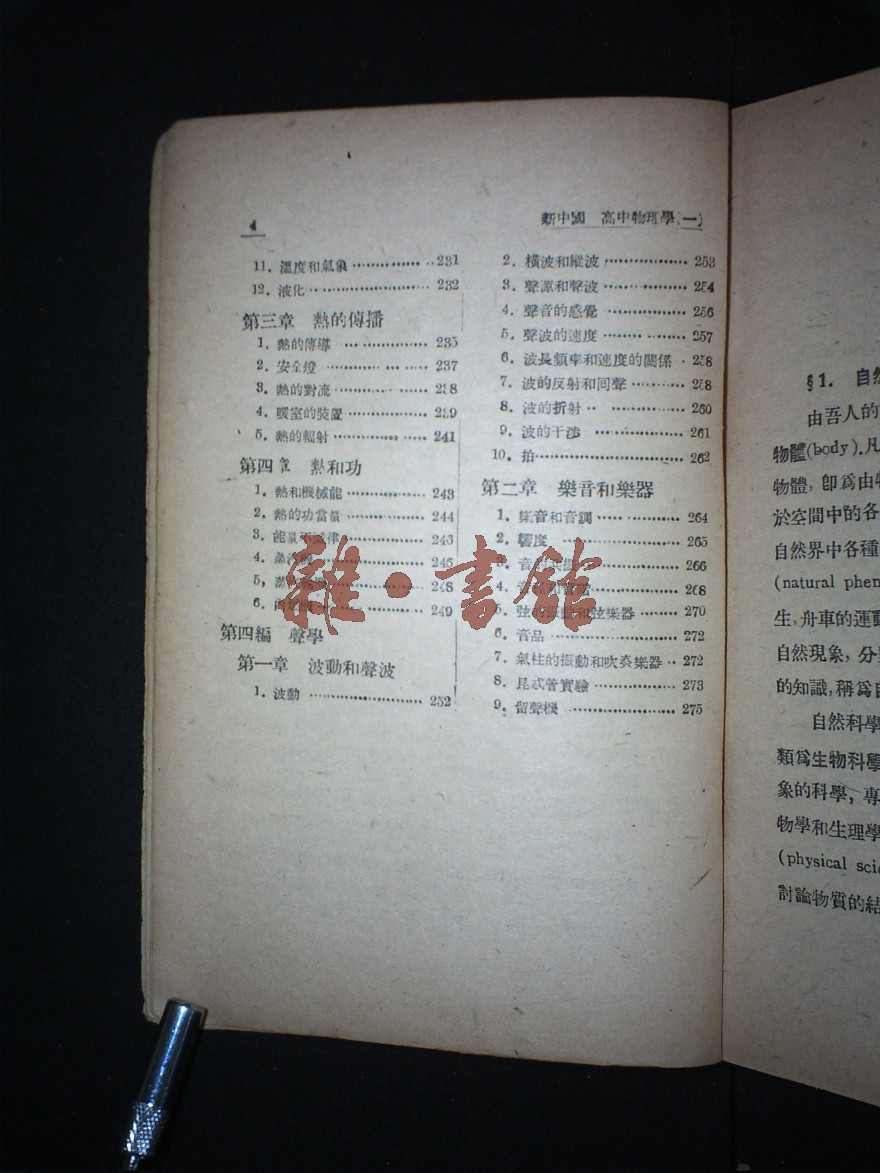 4
新中國 高中物理學(一)
11. 溫度和氣象 231
12. 液化 232
第三章 熱的傳播
1. 熱的傳導 235
2. 安全燈 237
3. 熱的對流 238
4. 暖室的裝置 239
5. 熱的輻射 241
第四章 熱和功
1. 熱和機械能 243
2. 熱的功當量 244
3. 能量不滅律 245
4. 246
5. 248
6. 249
第四編 聲學
第一章 波動和聲波
1. 波動 252
2. 橫波和縱波 253
3. 聲源和聲波 254
4. 聲音的感覺 256
5. 聲波的速度 257
6. 波長頻率和速度的關係 258
7. 波的反射和回聲 258
8. 波的折射 260
9. 波的干涉 261
10. 拍 262
第二章 樂音和樂器
1. 樂音和音調 264
2. 響度 265
3. 266
4. 268
5. 弦的振動和弦樂器 270
6. 音品 272
7. 氣柱的振動和吹奏樂器 272
8. 昆忒管實驗 273
9. 留聲機 275
雜·書館
§1. 自然
由吾人的
物體(body).凡
物體, 卽爲由物
於空間中的各
自然界中各種
(natural phen
生、舟車的運動
自然現象, 分
的知識,稱爲自
自然科學
類爲生物科學
象的科學, 專
物學和生理學
(physical scie
討論物質的結